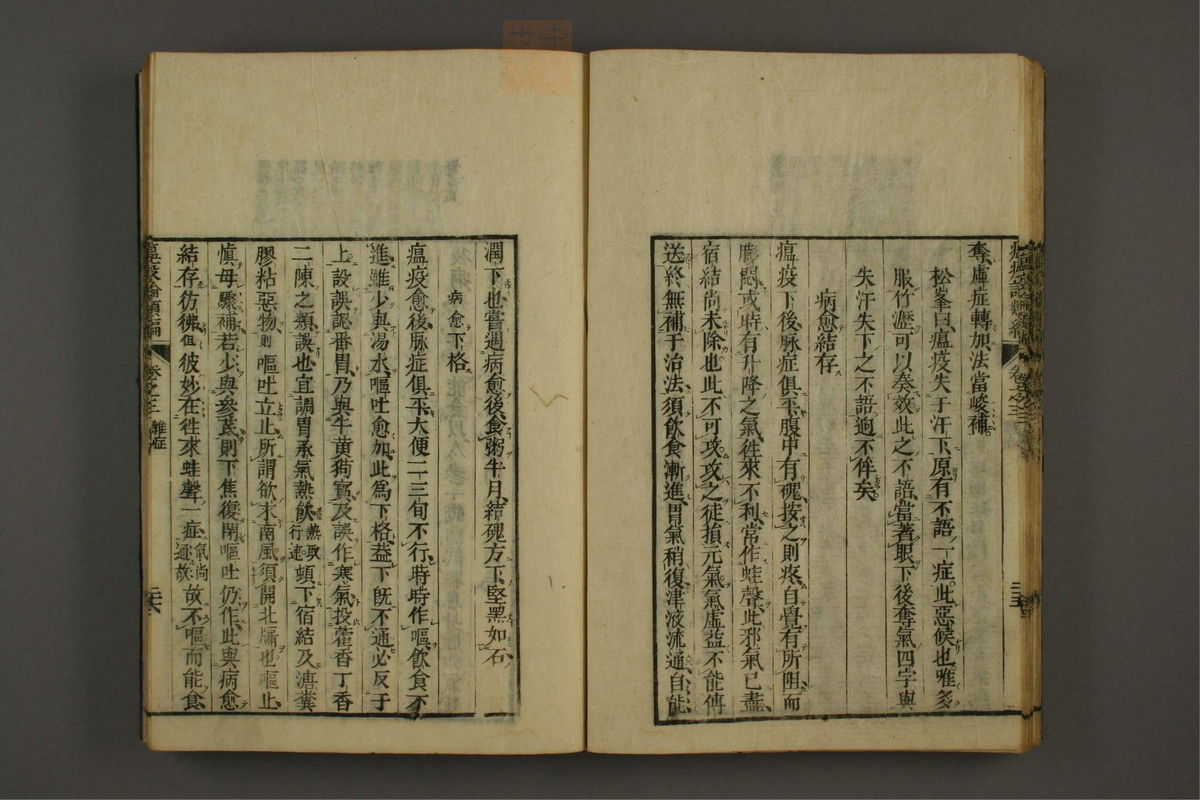 奪虛症轉加法當峻補
松峯曰瘟疫失于汗下原有不語一症此惡候也唯多
服竹瀝可以奏效此之不語當著眼下後奪氣四字與
失汗失下之不語逈不侔矣
病愈結存
瘟疫下後脉症俱平腹中有磈按之則疼自覺有所阻而
膨悶或時有升降之氣徃來不利常作蛙聲此邪氣已盡
宿結尚未除也此不可攻攻之徒損元氣氣虛益不能傳
送終無補于治法須飲食漸進胃氣稍復津液流通自能
潤下也嘗遇病愈後食粥半月結磈方下堅黑如石
病愈下格
瘟疫愈後脉症俱平大便二三旬不行時時作嘔飲食不
進雖少與湯水嘔吐愈加此爲下格葢下既不通必反于
上設誤認番胃乃與牛黃狗寶及誤作寒氣投藿香丁香
二陳之類誤也宜調胃承氣熱飲熱取行速頓下宿結及溏糞
膠粘惡物則嘔吐立止所謂欲求南風須開北牖也嘔止
慎毋驟補若少與參芪則下焦復閉嘔吐仍作此與病愈
結存彷彿但彼妙在徃來蛙聲一症氣尚通故故不嘔而能食
瘟疫論類編
卷之三
雜症
三六